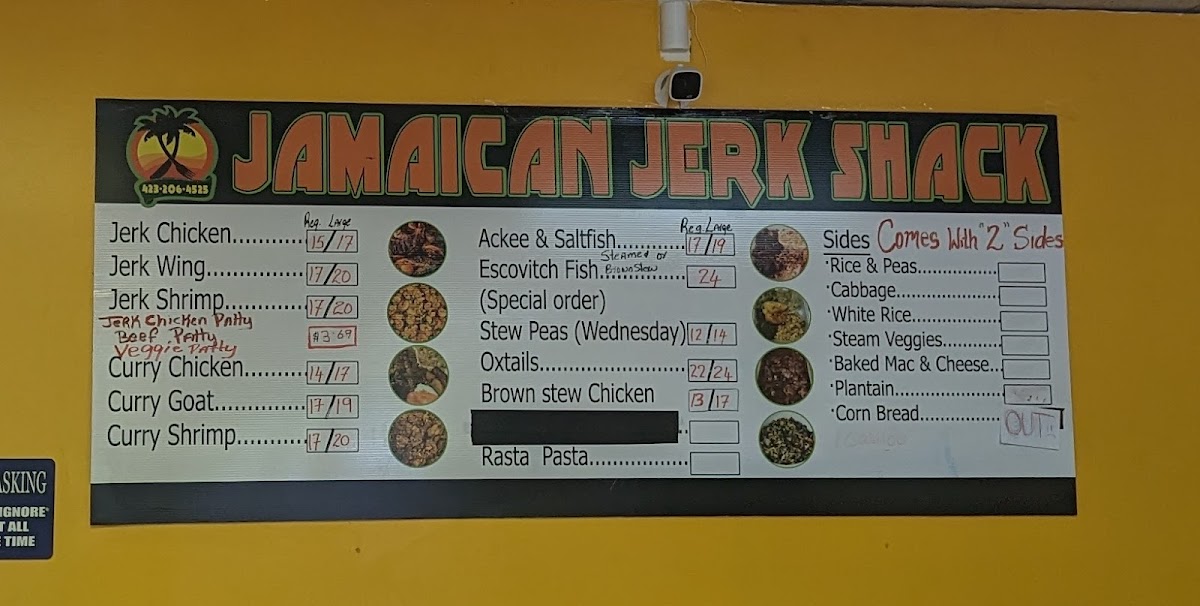 JAMAICAN JERK SHACK
423-206-4525
Reg. Large
Jerk Chicken............ 15/17
Jerk Wing............... 17/20
Jerk Shrimp............. 17/20
JERK Chicken Patty
Beef Patty $3.69
Veggie Patty
Curry Chicken........... 14/17
Curry Goat.............. 17/19
Curry Shrimp............ 17/20
Reg. Large
Ackee & Saltfish.......... 17/19
Steamed or
Escovitch Fish Brown Stew............... 24
(Special order)
Stew Peas (Wednesday) 12/14
Oxtails.................. 22/24
Brown stew Chicken 13/17
Rasta Pasta.................
Sides Comes With "2" Sides
·Rice & Peas..............
·Cabbage..................
·White Rice...............
·Steam Veggies............
·Baked Mac & Cheese...
·Plantain.................
·Corn Bread............... OUT!
ASKING
IGNORE
T ALL
E TIME